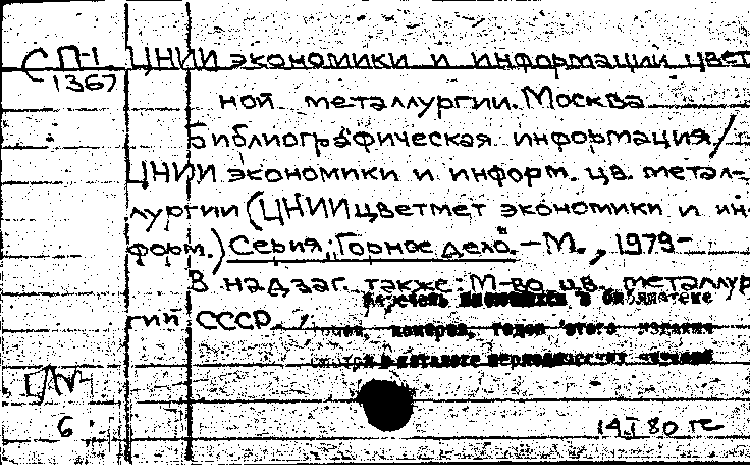 СП-1 ЦНИИ экономики и информации цвет
1367
ной металлургии. Москва
Библиографическая информация/
ЦНИИ экономики и информ. цв. метал-
лургии (ЦНИИцветмет экономики и ин-
форм.) Серия: "Горное дело". - М., 1979-
В надзаг. также: М-во цв. металлур
гии СССР.
Перечень имеющихся в библиотеке
номеров, годов этого издания
смотри в каталоге периодических изданий
6
14.I 80 гс